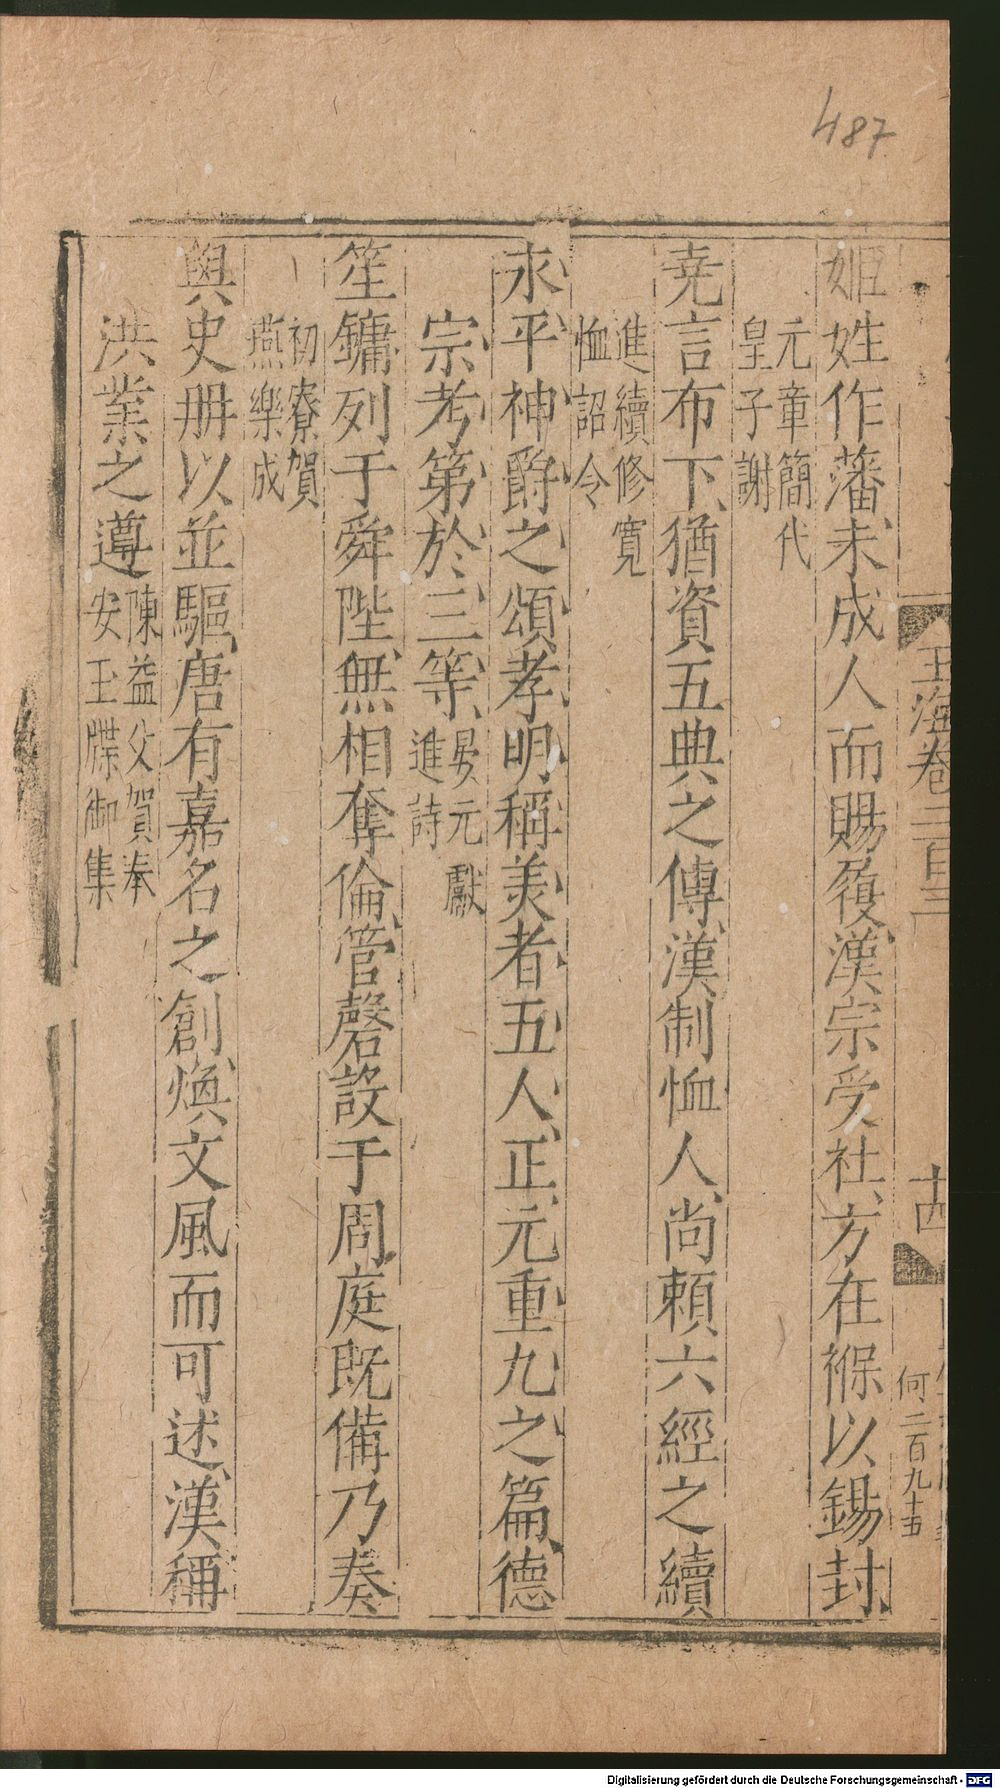 487
玉海卷二百三
十四
何二百九十五
姬姓作藩未成人而賜履漢宗受社方在褓以錫封
元章簡代
皇子謝
堯言布下猶資五典之傳漢制恤人尚賴六經之續
進續修寛
恤詔令
永平神爵之頌孝明稱美者五人正元重九之篇德
宗考第於三等晏元獻
進詩
笙鏞列于舜陛無相奪倫管磬設于周庭既備乃奏
初寮賀
燕樂成
與史册以並驅唐有嘉名之創煥文風而可述漢稱
洪業之遵陳益父賀奉
安玉牒御集
Digitalisierung gefördert durch die Deutsche Forschungsgemeinschaft - DFG